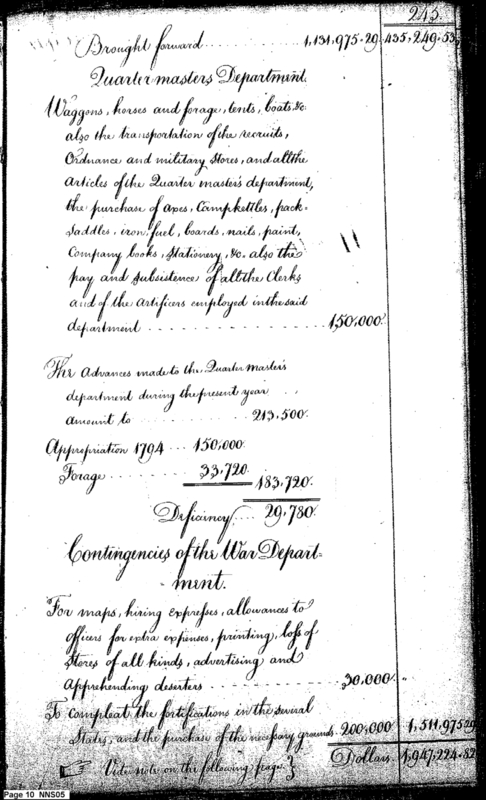 245.
Brought forward . . . . . . . . 1,131,975.29 435,249.53
Quarter masters Department.
Waggons, horses and forage, tents, boats &c
also the transportation of the recruits,
Ordnance and military stores, and all the
articles of the Quarter master's department,
the purchase of axes, Campkettles, pack-
saddles, iron, fuel, boards, nails, paint,
Company books, Stationery, &c. also the
pay and subsistence of all the Clerks
and of the artificers employed in the said
department . . . . . . . . . . 150,000.
The advances made to the Quarter master's
department during the present year . . .
amount to . . . . . . . . 213,500.
Appropriation 1794 . . . 150,000.
Forage . . . . . . 33,720 183,720.
Deficiency . . . . . 29,780.
Contingencies of the War Depart-
ment.
For maps, hiring expresses, allowances to
officers for extra expenses, printing, loss of
Stores of all kinds, advertising and
Apprehending deserters . . . . . . . . 30,000. "
To compleat the fortifications in the several
States, and the purchase of the necessary grounds 200,000 1,511,975.29
Dollars 1,947,224.82
☞ Vide note on the following page. }
Page 10 NNS05